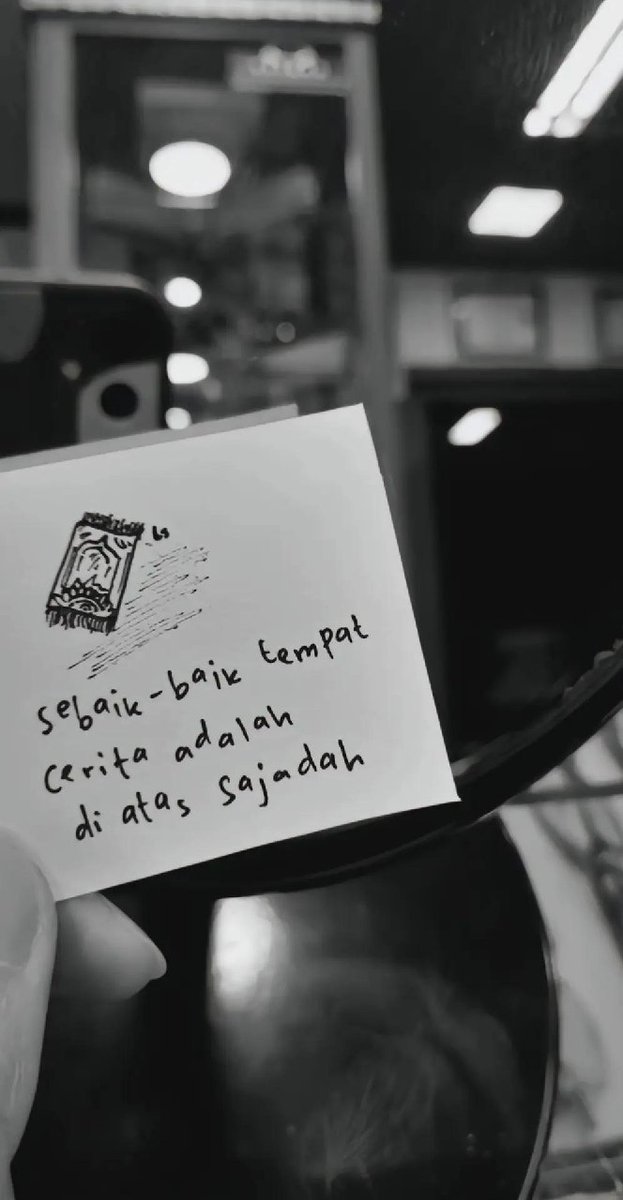 sebaik-baik tempat
cerita adalah
di atas sajadah